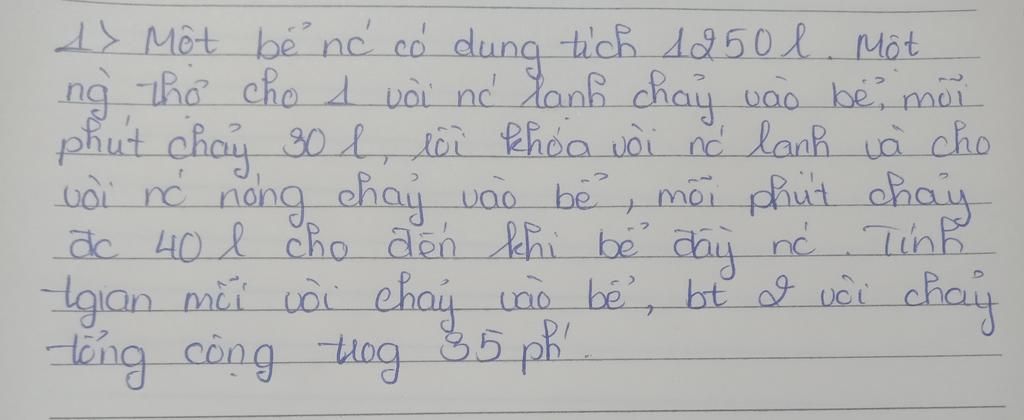 1> Một bể nć có dung tích 1250 l. Một
ng̀ thợ cho 1 vòi nć lạnh chảy vào bể, mỗi
phút chảy 30 l, rồi khóa vòi nć lạnh và cho
vòi nć nóng chảy vào bể, mỗi phút chảy
đc 40 l cho đến khi bể đầy nć. Tính
tgian mỗi vòi chảy vào bể, bt 2 vòi chảy
tổng cộng trog 35 ph'.